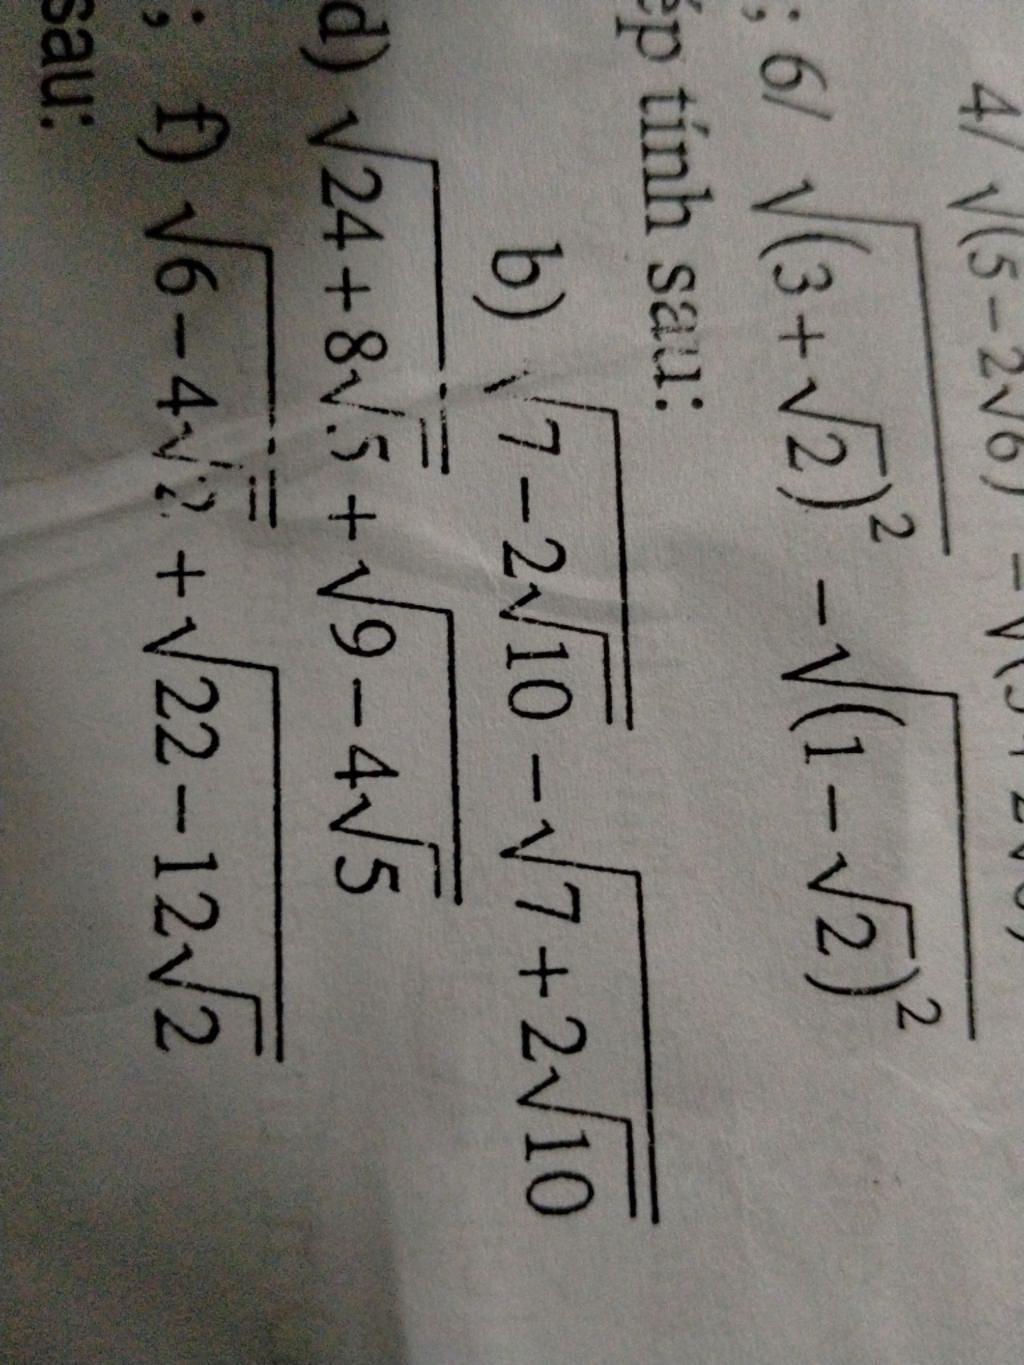 4/ √(5 − 2√6) − √(5 + 2√6)
; 6/ √(3 + √2)² − √(1 − √2)²
ép tính sau:
b) √(7 − 2√10) − √(7 + 2√10)
d) √(24 + 8√5) + √(9 − 4√5)
; f) √(6 − 4√2) + √(22 − 12√2)
sau: